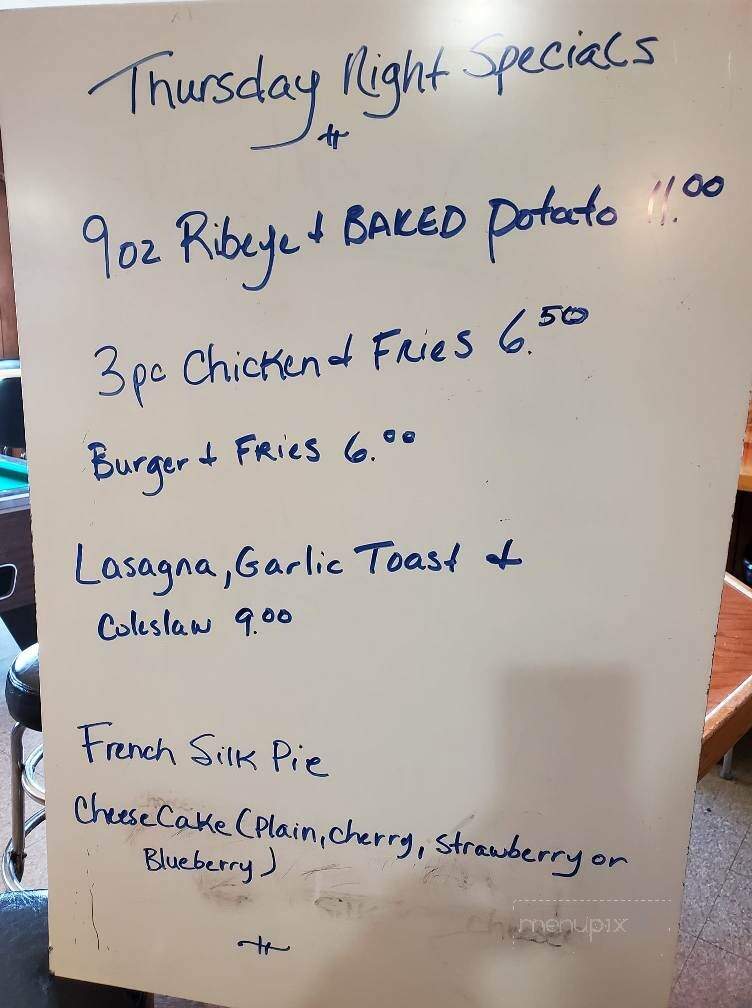 Thursday Night Specials
9oz Ribeye & BAKED Potato 11.00
3pc Chicken & Fries 6.50
Burger & Fries 6.00
Lasagna, Garlic Toast &
Coleslaw 9.00
French Silk Pie
Cheese Cake (Plain, cherry, strawberry or
Blueberry)
menupix